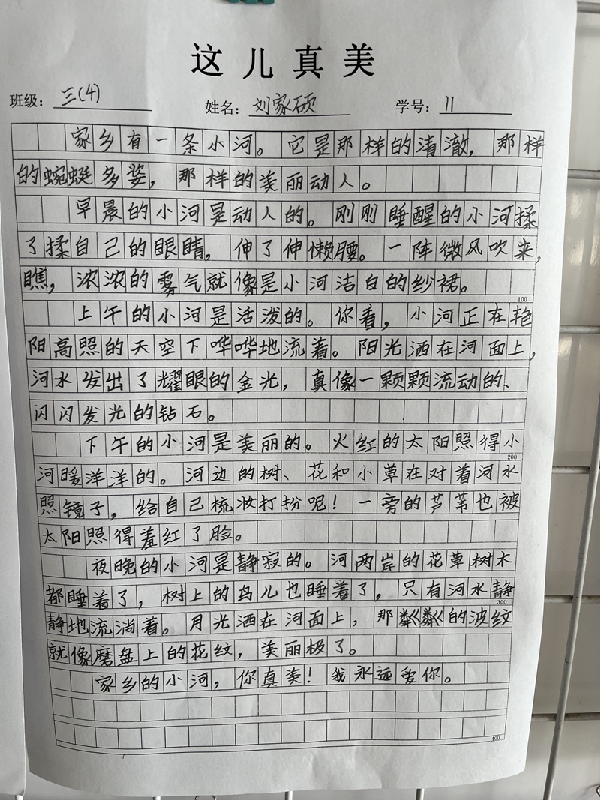 这儿真美
班级：三(4) 姓名：刘家硕 学号：11
家乡有一条小河。它是那样的清澈，那样
的蜿蜒多姿，那样的美丽动人。
早晨的小河是动人的。刚刚睡醒的小河揉
了揉自己的眼睛，伸了伸懒腰。一阵微风吹来，
瞧，浓浓的雾气就像是小河洁白的纱裙。
100
上午的小河是活泼的。你看，小河正在艳
阳高照的天空下哗哗地流着。阳光洒在河面上，
河水发出了耀眼的金光，真像一颗颗流动的、
闪闪发光的钻石。
下午的小河是美丽的。火红的太阳照得小
200
河暖洋洋的。河边的树、花和小草在对着河水
照镜子，给自己梳妆打扮呢！一旁的芦苇也被
太阳照得羞红了脸。
夜晚的小河是静寂的。河两岸的花草树木
都睡着了，树上的鸟儿也睡着了，只有河水静
300
静地流淌着。月光洒在河面上，那粼粼的波纹
就像磨盘上的花纹，美丽极了。
家乡的小河，你真美！我永远爱你。
400